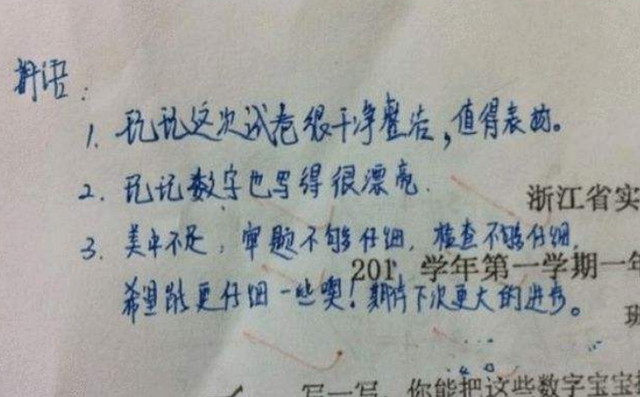 评语：
1. 玩玩这次试卷很干净整洁，值得表扬。
2. 玩玩数字也写得很漂亮.
3. 美中不足，审题不够仔细，检查不够仔细，
浙江省实
希望能更仔细一些噢！期待下次更大的进步。
201 学年第一学期一年
班
写一写，你能把这些数字宝宝